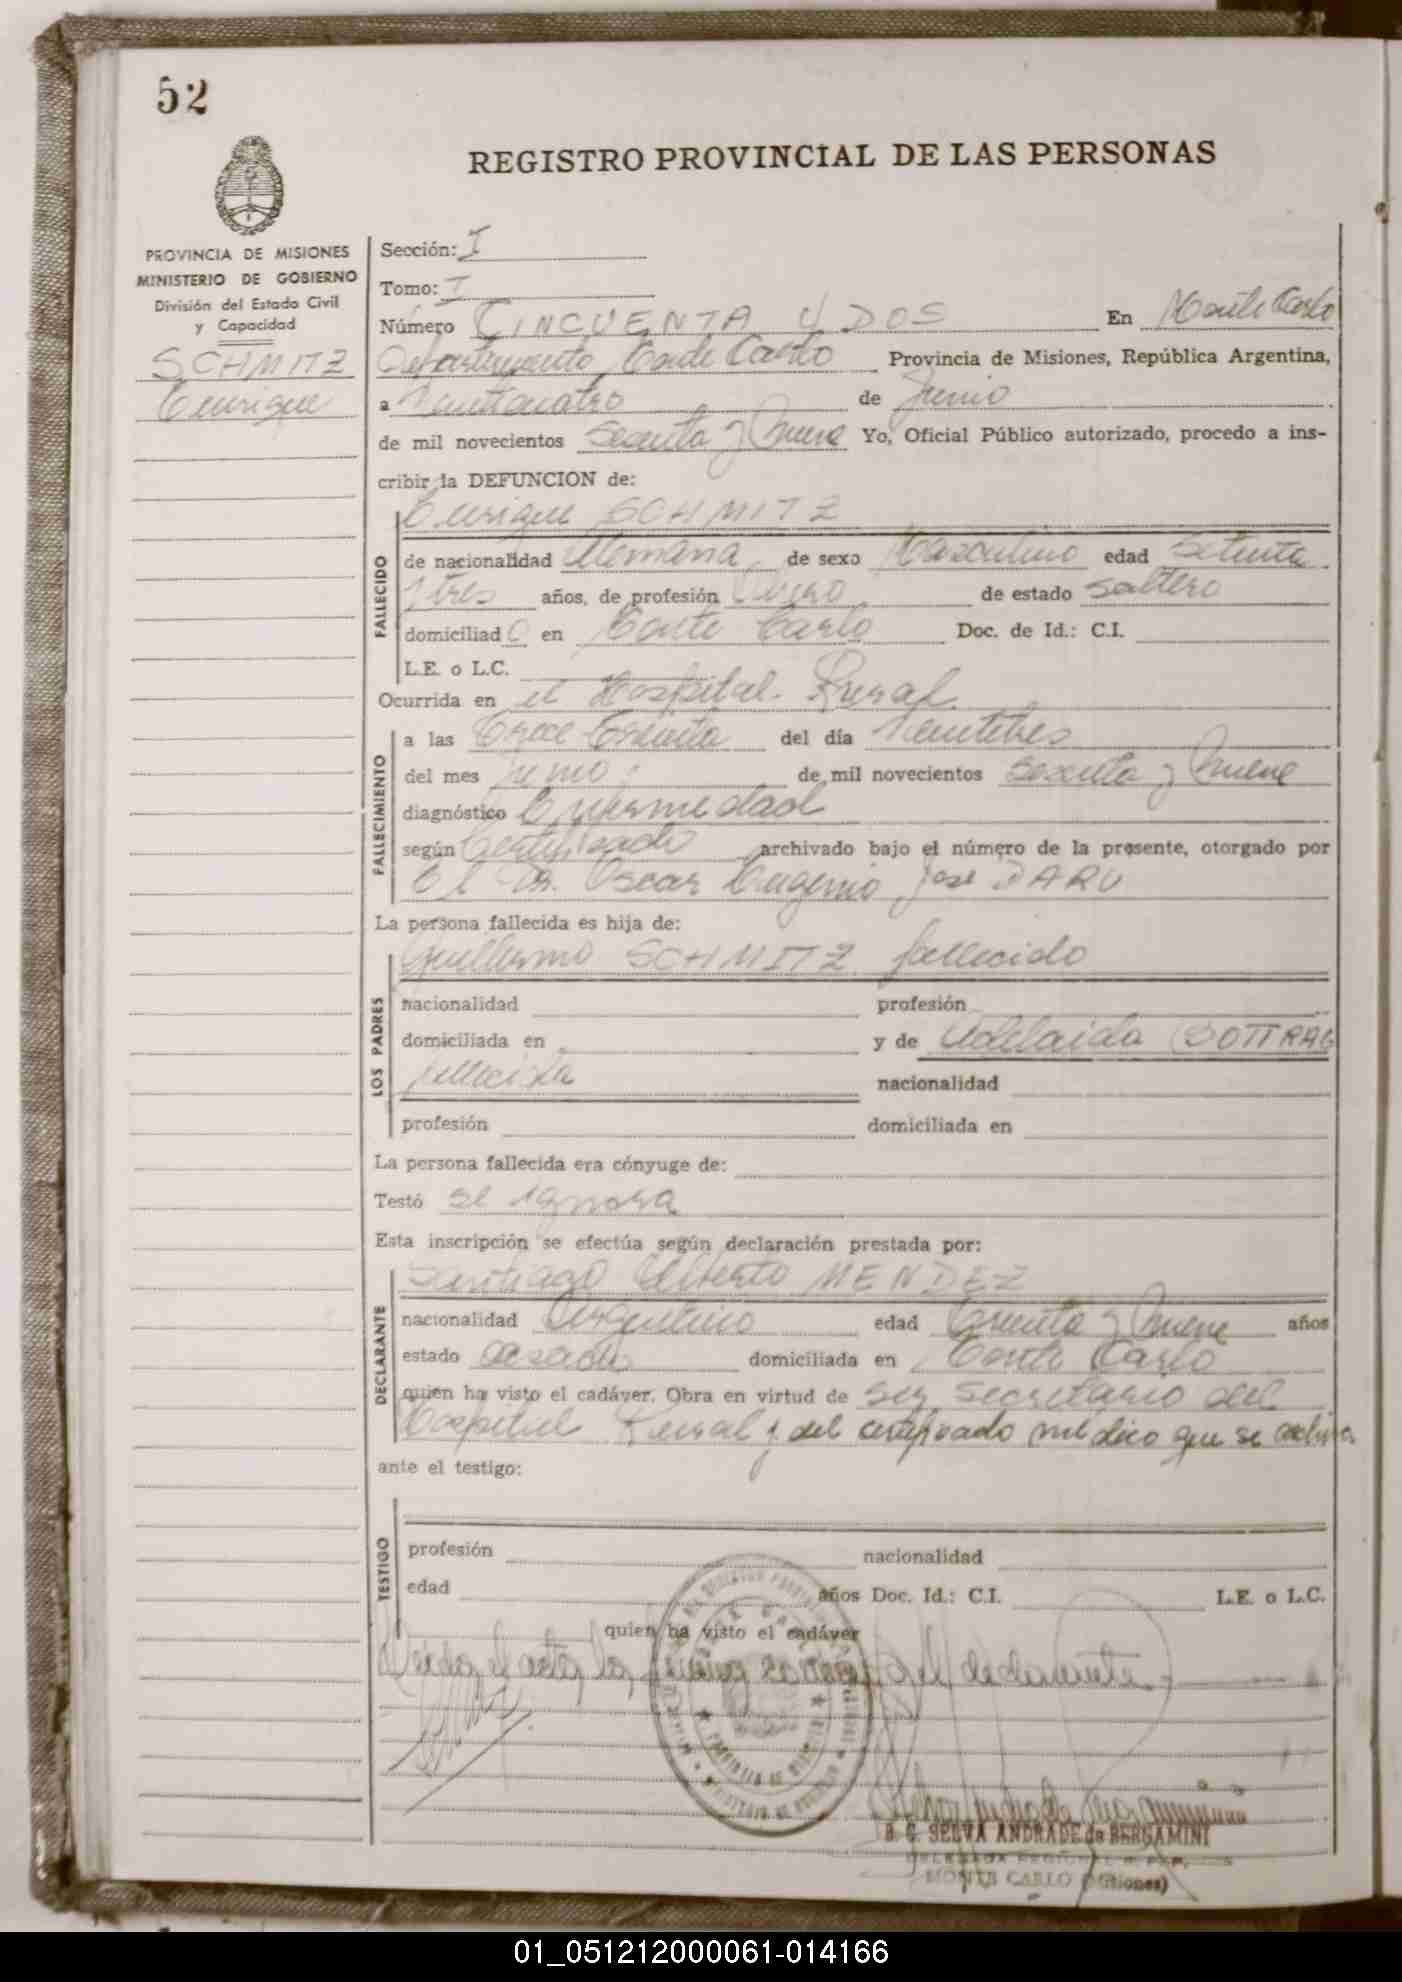 52
REGISTRO PROVINCIAL DE LAS PERSONAS
PROVINCIA DE MISIONES
MINISTERIO DE GOBIERNO
División del Estado Civil
y Capacidad
SCHMITZ
Enrique
Sección: I
Tomo: I
Número CINCUENTA Y DOS En Monte Carlo
Departamento Monte Carlo Provincia de Misiones, República Argentina,
a Veinticuatro de Junio
de mil novecientos Sesenta y Nueve Yo, Oficial Público autorizado, procedo a ins-
cribir la DEFUNCION de:
Enrique SCHMITZ
FALLECIDO
de nacionalidad Alemana de sexo Masculino edad Setenta
y tres años, de profesión Obrero de estado Soltero
domiciliado en Monte Carlo Doc. de Id.: C.I.
L.E. o L.C.
Ocurrida en el Hospital Rural
FALLECIMIENTO
a las Trece Treinta del día Veintitres
del mes Junio de mil novecientos Sesenta y Nueve
diagnóstico Enfermedad
según Certificado archivado bajo el número de la presente, otorgado por
El Dr. Oscar Eugenio José DARU
La persona fallecida es hija de:
Guillermo SCHMITZ fallecido
LOS PADRES
nacionalidad profesión
domiciliada en y de Adelaida BOTTRAG
fallecida nacionalidad
profesión domiciliada en
La persona fallecida era cónyuge de:
Testó se ignora
Esta inscripción se efectúa según declaración prestada por:
Santiago Alberto MENDEZ
DECLARANTE
nacionalidad Argentino edad Treinta y Nueve años
estado Casado domiciliada en Monte Carlo
quien ha visto el cadáver. Obra en virtud de Ser Secretario del
Hospital Rural y del certificado médico que se archiva
ante el testigo:
TESTIGO
profesión nacionalidad
edad años Doc. Id.: C.I. L.E. o L.C.
quien ha visto el cadáver
Leída el acta la firman conmigo el declarante.
B. G. SELVA ANDRADE de BERGAMINI
DELEGADA REGIONAL R. P. P.
MONTE CARLO (Misiones)
01_051212000061-014166